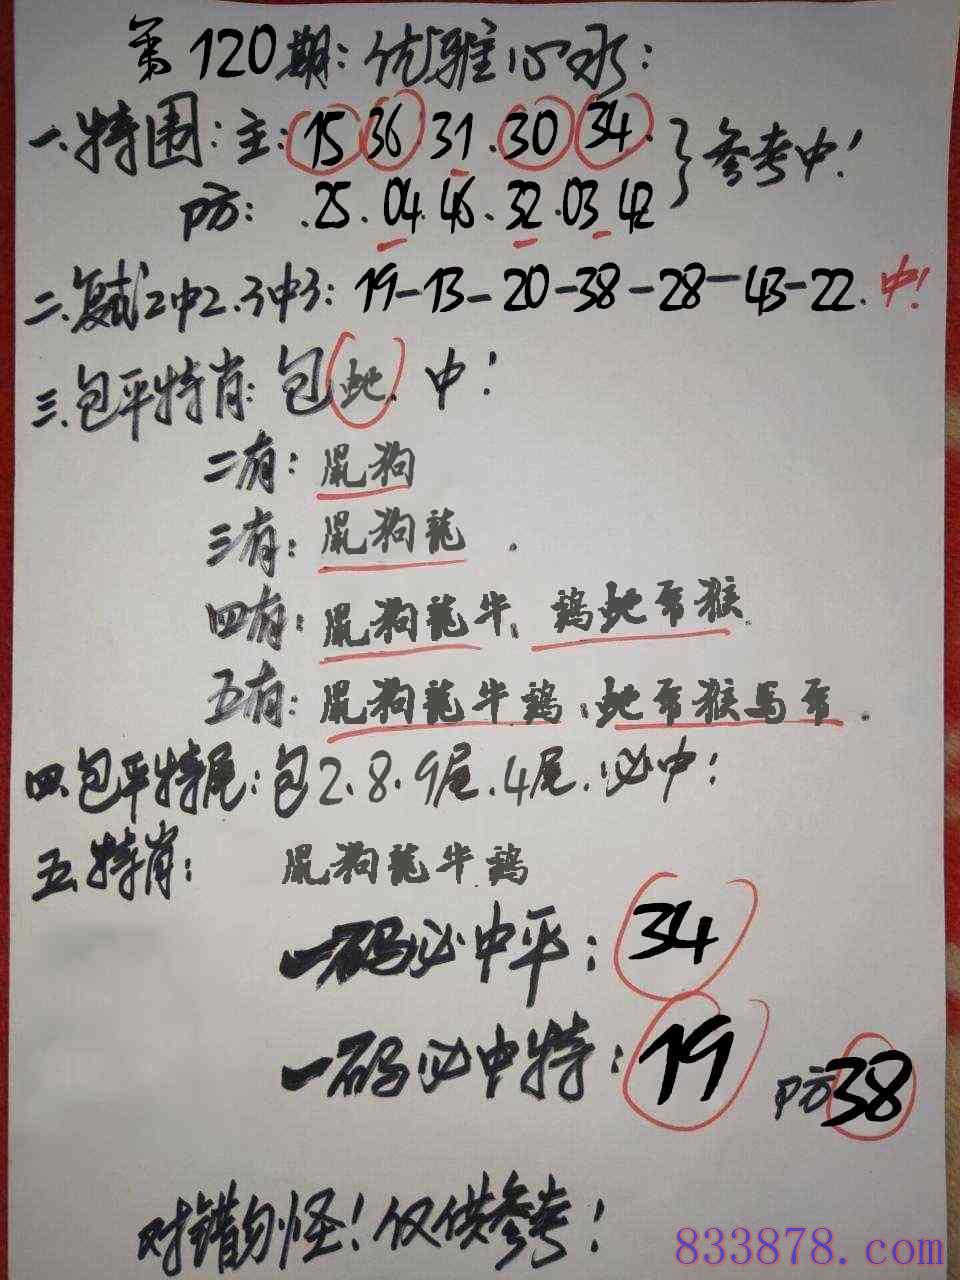 第120期:优雅心水:
一.特围:主:15 36.31.30 34.}参考中!
防:.25.04.46.32.03 42
二.复式2中2.3中3:19-13-20-38-28-43-22.中!
三.包平特肖:包蛇.中!
二有:鼠狗
三有:鼠狗龍.
四有:鼠狗龍牛、鷄蛇帝猴.
五有:鼠狗龍牛鷄、蛇帝猴馬帝.
四.包平特尾:包2.8.9尾.4尾.必中!
五.特肖:鼠狗龍牛鷄
一码必中平:34
一码必中特:19 防38
对错勿怪!仅供参考!
833878.com